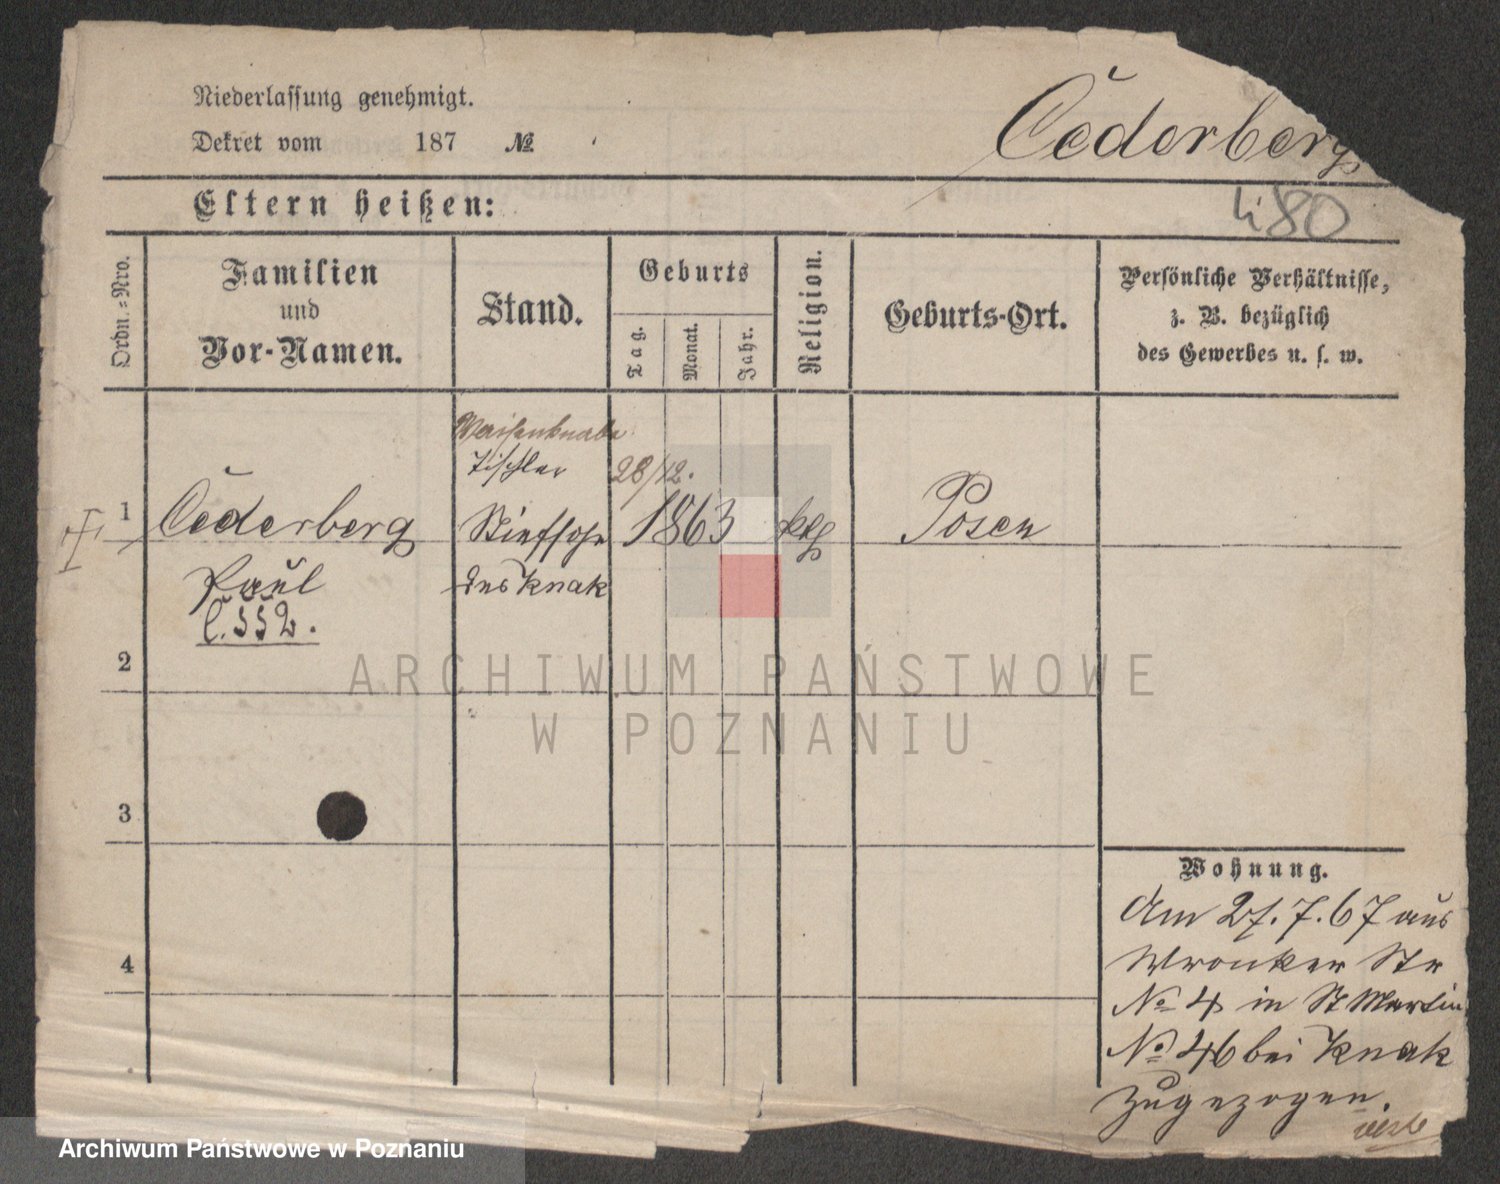 Niederlassung genehmigt.
Dekret vom 187 №
Cederberg
480
Eltern heißen:
Ordn.-Nro.
Familien
und
Vor-Namen.
Stand.
Geburts
Tag.
Monat.
Jahr.
Religion.
Geburts-Ort.
Persönliche Verhältnisse,
z. B. bezüglich
des Gewerbes u. s. w.
Waisenknabe
Tischler
28/12.
1
Cederberg
Stiefsohn
1863
kth
Posen
Paul
des Knak
C. 552.
2
3
4
Wohnung.
Am 27.7.67 aus
Wronker Str
No 4 in St Martin
No 46 bei Knak
zugezogen.
ARCHIWUM PAŃSTWOWE
W POZNANIU
Archiwum Państwowe w Poznaniu